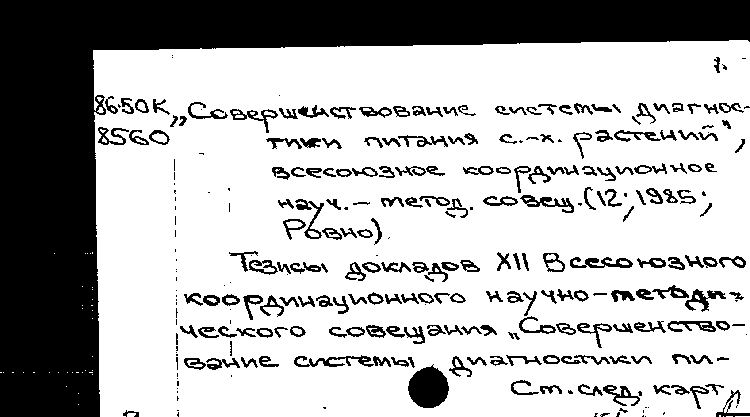 1.
86-50К „Совершенствование системы диагнос-
8560 тики питания с.-х. растений",
всесоюзное координационное
науч.- метод. совещ. (12; 1985;
Ровно)
Тезисы докладов XII Всесоюзного
координационного научно-методи-
ческого совещания „Совершенство-
вание системы диагностики пи-
См. след. карт.